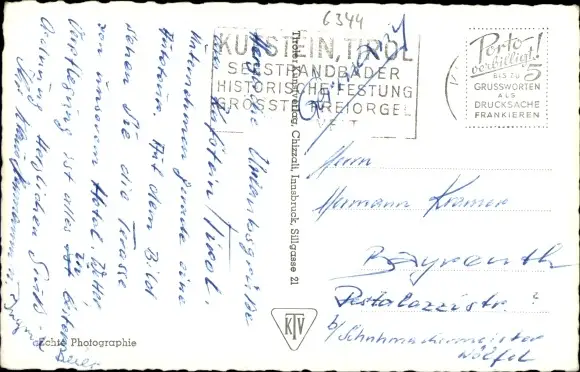 6344
KUFSTEIN, TIROL
SEESTRANDBÄDER
HISTORISCHE FESTUNG
GRÖSSTE FREIORGEL
WELT
Porto
verbilligt!
BIS ZU 5
GRUSSWORTEN
ALS
DRUCKSACHE
FRANKIEREN
Herzliche Urlaubsgrüße
aus Kufstein/Tirol.
Unternehmen gerade eine
Auf dem Bild
sehen Sie die Terasse
von unserem Hotel. Wetter
ist alles in bester
Ordnung. Herzlichen Gruß
Tiroler Kunstverlag Chizzali, Innsbruck, Sillgasse 21
Herrn
Hermann Kramer
Bayreuth
Pestalozzistr. 2
b/Schuhmachermeister
Wölfel
KTV
Echte Photographie